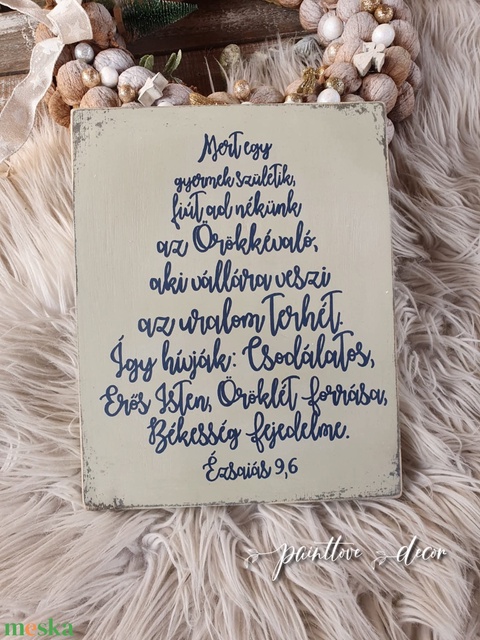 Mert egy
gyermek születik,
fiút ad nékünk
az Örökkévaló,
aki vállára veszi
az uralom terhét.
Így hívják: Csodálatos,
Erős Isten, Öröklét forrása,
Békesség fejedelme.
Ézsaiás 9,6
paintlove decor
meska